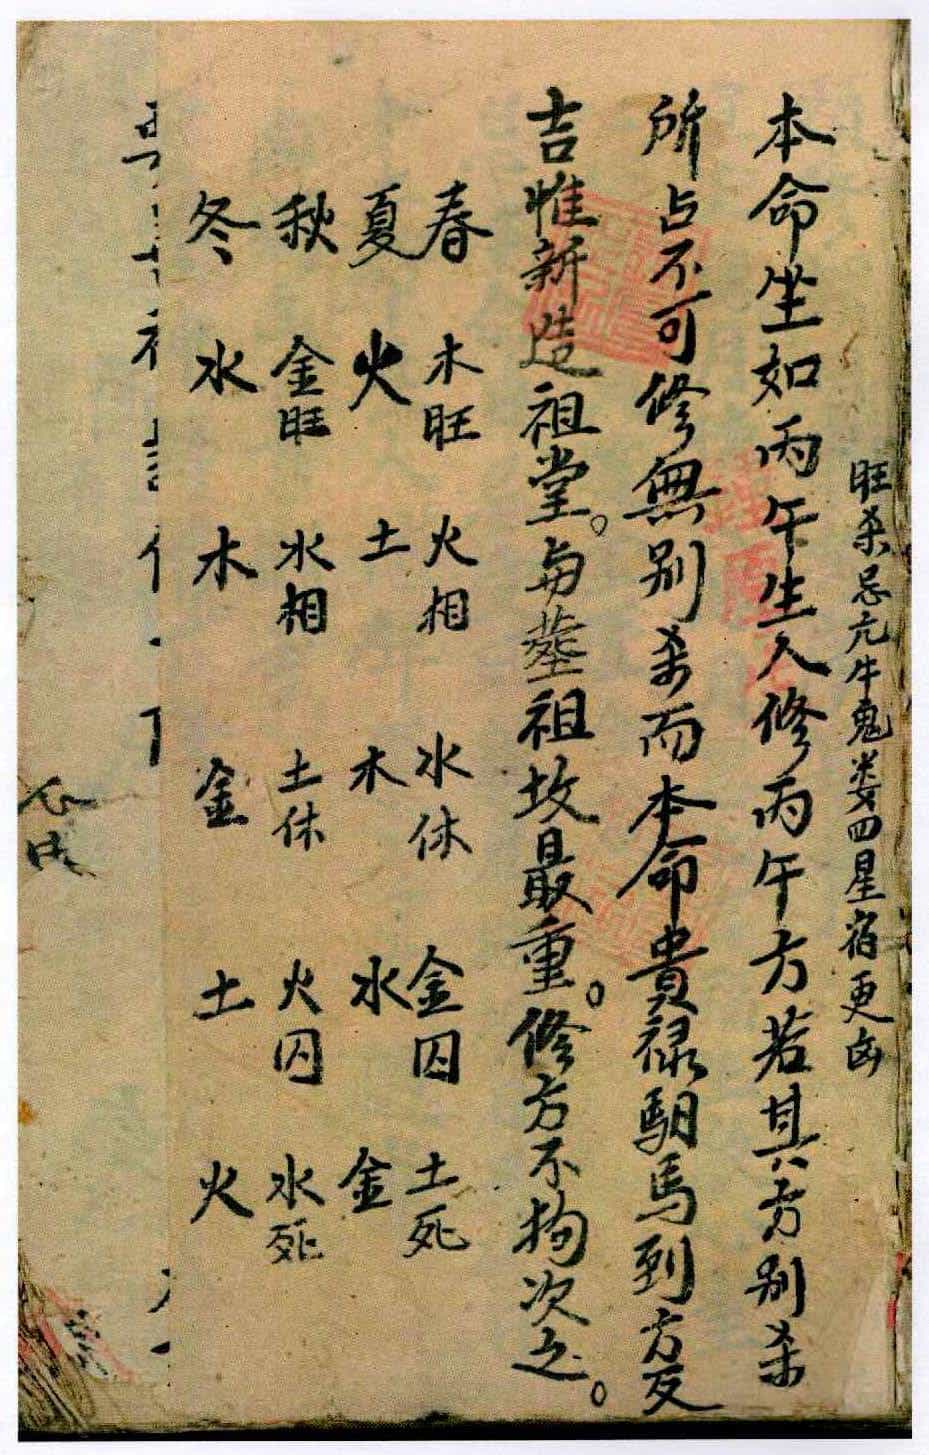 旺杀忌亢牛鬼娄四星宿更凶
本命坐如丙午生人修丙午方若其方别杀
所占不可修無别杀而本命貴禄馹馬到方反
吉惟新造祖堂。与塟祖坟最重。修方不拘次之。
春 木旺 火相 水休 金囚 土死
夏 火 土 木 水 金
秋 金旺 水相 土休 火囚 水死
冬 水 木 金 土 火